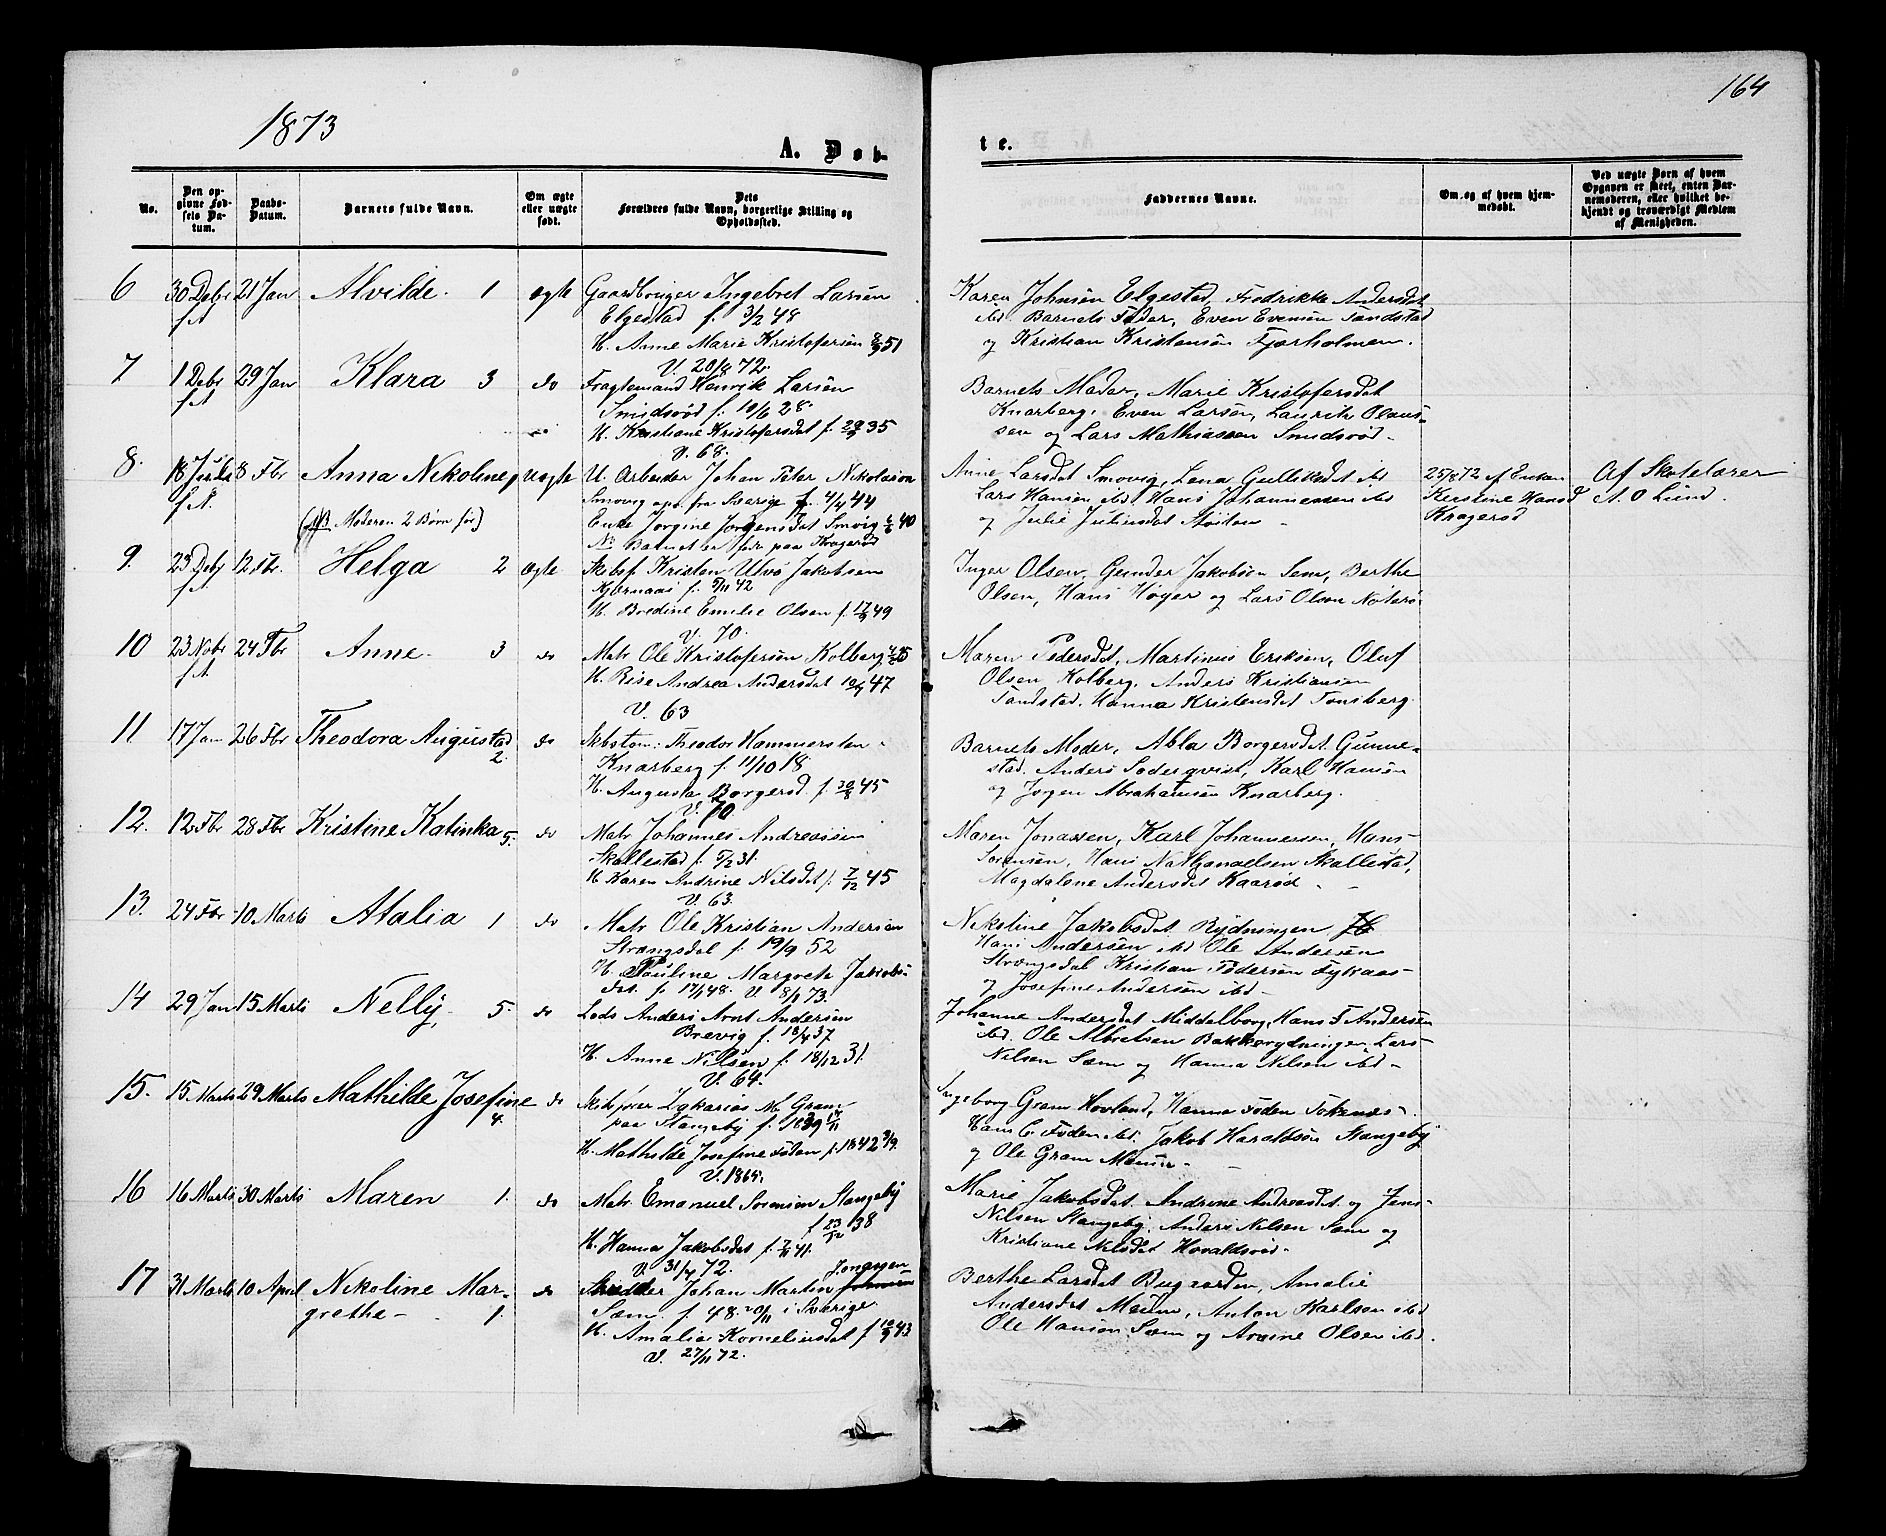 1873
164
A. Døb-
te.
No.
Den op-
givne Fød-
sels Da-
tum.
Daabs-
Datum.
Barnets fulde Navn.
Om ægte
eller uægte
født.
Dets
Forældres fulde Navn, borgerlige Stilling og
Opholdssted.
Faddernes Navne.
Om og af hvem hjem-
medøbt.
Ved uægte Børn af hvem
Opgaven er skeet, enten Bar-
nemoderen, eller hvilket be-
kjendt og troværdigt Medlem
af Menigheden.
6 30 Debr 21 Jan Alvilde. 1 ægte Gaardbruger Ingebret Larsen
f A Elgestad f. 3/2 48
H. Anne Marie Kristofersen 51
V. 20/8 72.
Karen Johnsen Elgestad, Fredrikke Andersdat
ibd. Barnets Fader, Even Evensen Tandstad
og Kristian Kristensen Fjærholmen.
7 1 Debr 29 Jan Klara 3 do Fragtemand Henrik Larsen
f A Smidsrød f. 10/6 28.
H. Kristiane Kristofersdat f. 35
V. 68.
Barnets Moder, Marie Kristofersdat
Knarberg, Even Larsen, Laurits Olaus-
sen og Lars Mathiassen Smidsrød.
8. 18 Juli 8 Fbr Anna Nikoline, uægte U. Arbeider Johan Peter Nikolaison
f A. Smovig opr. fra Sverige f. 4/4 44
(NB Moderen 2 Børn før) Enke Jørgine Jørgensdat Smvig 40
NB Barnet er født paa Kragerød
Anne Larsdat Smovig, Lena Gulliksdat ibd
Lars Hansen ibd, Hans Johannessen ibd
og Julie Juliusdat Støiten
25/8 72 af Enken
Kerstine Hansd
Kragerød
Af Skolelærer
A. O Lund.
9. 23 Debr 12 Fbr. Helga 2 ægte Skibsf. Kristen Ulvø Jakobsen
f A. Kjærnaas f. 5/11 42
H. Bredine Emilie Olsen f. 49
V. 70.
Inger Olsen, Gunder Jakobsen Sem, Berthe
Olsen, Hans Høyer og Lars Olsen Noterø
10 23 Nobr 24 Fbr Anne 3 do Matr Ole Kristofersen Kolberg 35
f A. H. Reise Andrea Andersdat 47
V. 63
Maren Pedersdat, Martinus Eriksen, Oluf
Olsen Kolberg, Anders Kristiansen
Tandstad, Hanna Kristensdat Tønsberg
11 17 Jan 26 Fbr Theodora Augusta 2. do Skbstøm: Theodor Hammersten
Knarberg f. 11/10 18.
H. Augusta Borgersd. f. 45
V. 70
Barnets Moder, Abla Borgersdat Gunne-
stad, Anders Soderqvist, Karl Hansen
og Jørgen Abrahamsen Knarberg.
12. 12 Fbr 28 Fbr Kristine Katinka 5. do Matr Johannes Andreassen
Skallestad f. 5/2 31.
H Karen Andrine Nilsdat f. 7/12 45
V. 63.
Maren Jonassen, Karl Johannessen, Hans
Sørensen, Hans Nathanaelsen Skallestad,
Magdalene Andersdat Kaarød
13. 24 Fbr 10 Marts Atalia 1 do Matr Ole Kristian Andersen
Strængsdal f. 19/9 52
H. Pauline Margrete Jakobs-
dat. f. 17/1 48. V. 8/1 73.
Nikoline Jakobsdat Rydningen
Hans Andersen ibd Ole Andersen
Strængsdal Kristian Pedersen Fykaas
og Josefine Andersen ibd
14 29 Jan 15 Marts Nelly 5. do Lods Anders Arnt Andersen
Brevig f. 18/4 37
H. Anne Nilsen f. 18/12 31.
V. 64.
Johanne Andersdat Middelborg, Hans F Andersen
ibd. Ole Albretsen Bakkerydningen, Lars
Nilsen Sæm og Hanna Nilsen ibd
15. 15 Marts 29 Marts Mathilde Josefine 4. do Skibsfører Zakarias M. Gram
paa Stangeby f. 1839
H. Mathilde Josefine Føden f. 1842 3/9.
V. 1865.
Ingeborg Gram Hovland, Hanna Føden Tokenes
Hans C. Føden ibd. Jakob Haraldsen Stangeby
og Ole Gram Meum
16 16 Marts 30 Marts Maren 1. do Matr Emanuel Sørensen Stangeby
f 23/12 38
H. Hanna Jakobsdat f. 41.
V. 31/ 72.
Marie Jakobsdat Andrine Andreasdat og Jens
Nilsen Stangeby, Anders Nilsen Sem og
Kristiane Nilsdat Hovaldsrød
17 31 Marts 10 April Nikoline Mar-
grethe 1. do Skredder Johan Martin Jonassen
Sæm. f. 48 20/11 i Sverige
H. Amalia Korneliusdat f 43
V. 27/11 72.
Berthe Larsdat Bugaarden, Amalie
Andersdat Meum, Anton Karlsen ibd
Ole Hansen Sæm og Avine Olsen ibd.